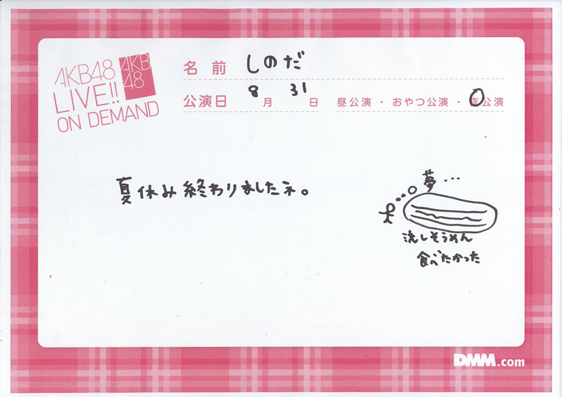 AKB48
LIVE!!
ON DEMAND
AKB
48
名前 しのだ
公演日 8月31日 昼公演・おやつ公演・夜公演
夏休み終わりましたネ。
夢...
流しそうめん
食べたかった
DMM.com